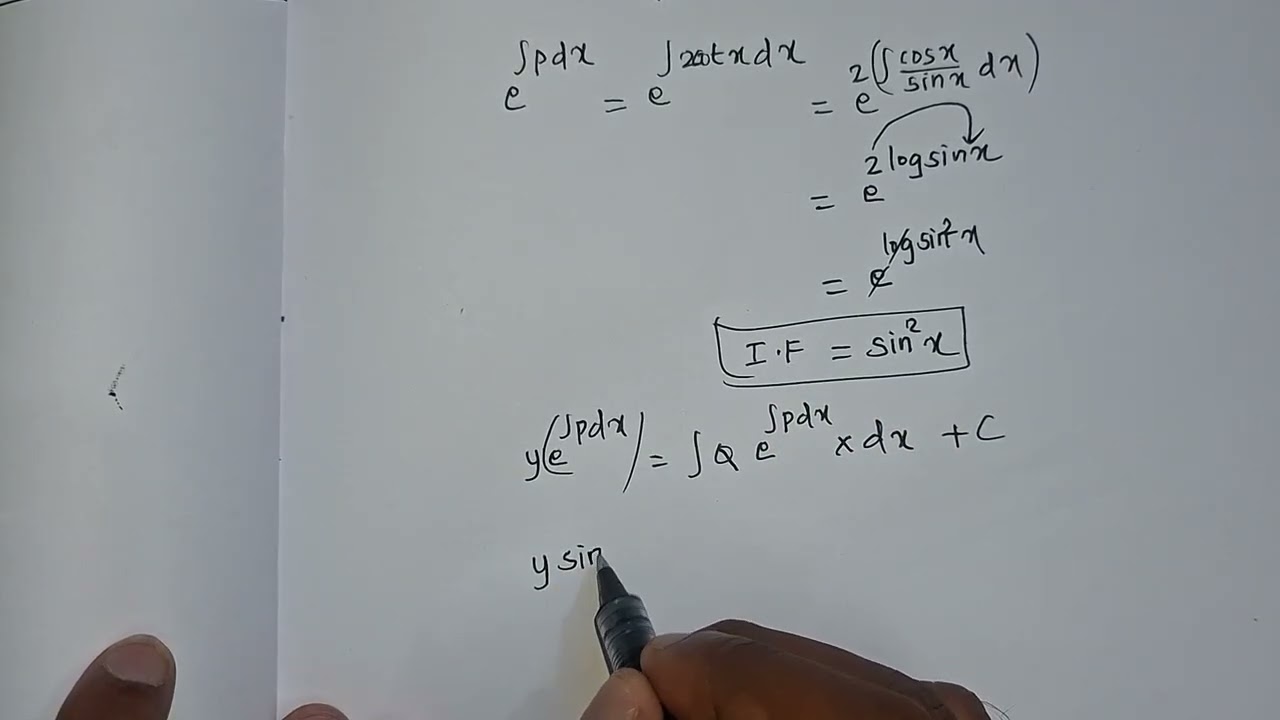 e^∫pdx = e^∫2cotxdx = e^2(∫cosx/sinx dx)
= e^2logsinx
= e^logsin²x
I.F = sin²x
y(e^∫pdx) = ∫Q e^∫pdx × dx + C
y sin